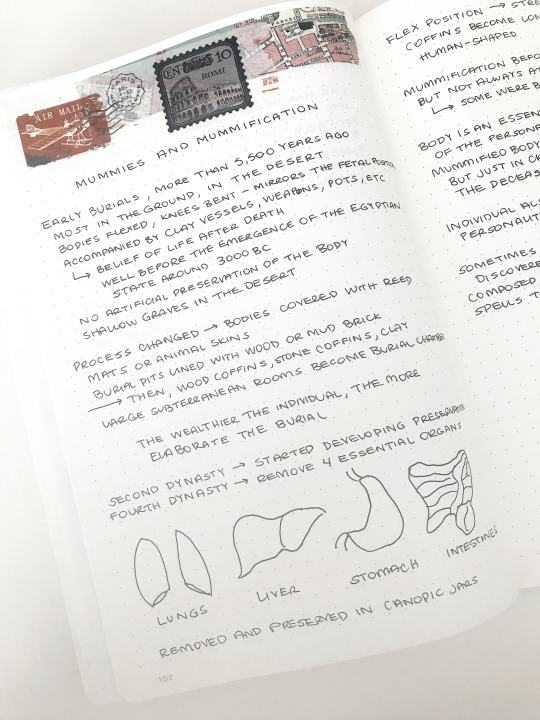 AIR MAIL
PARIS
CENT 10
ROME
MUMMIES AND MUMMIFICATION
EARLY BURIALS, MORE THAN 5,500 YEARS AGO
MOST IN THE GROUND, IN THE DESERT
BODIES FLEXED, KNEES BENT – MIRRORS THE FETAL POSITION
ACCOMPANIED BY CLAY VESSELS, WEAPONS, POTS, ETC
↳ BELIEF OF LIFE AFTER DEATH
WELL BEFORE THE EMERGENCE OF THE EGYPTIAN
STATE AROUND 3000 BC
NO ARTIFICIAL PRESERVATION OF THE BODY
SHALLOW GRAVES IN THE DESERT
PROCESS CHANGED → BODIES COVERED WITH REED
MATS OR ANIMAL SKINS
BURIAL PITS LINED WITH WOOD OR MUD BRICK
→ THEN, WOOD COFFINS, STONE COFFINS, CLAY
LARGE SUBTERRANEAN ROOMS BECOME BURIAL
THE WEALTHIER THE INDIVIDUAL, THE MORE
ELABORATE THE BURIAL
SECOND DYNASTY → STARTED DEVELOPING
FOURTH DYNASTY → REMOVE 4 ESSENTIAL ORGANS
LUNGS
LIVER
STOMACH
INTESTINES
REMOVED AND PRESERVED IN CANOPIC JARS
102
FLEX POSITION →
COFFINS BECOME
HUMAN-SHAPED
MUMMIFICATION
BUT NOT ALWAYS
↳ SOME WERE
BODY IS AN
OF THE
MUMMIFIED BODY
BUT JUST IN
THE
INDIVIDUAL
SOMETIMES
COMPOSED
SPELLS